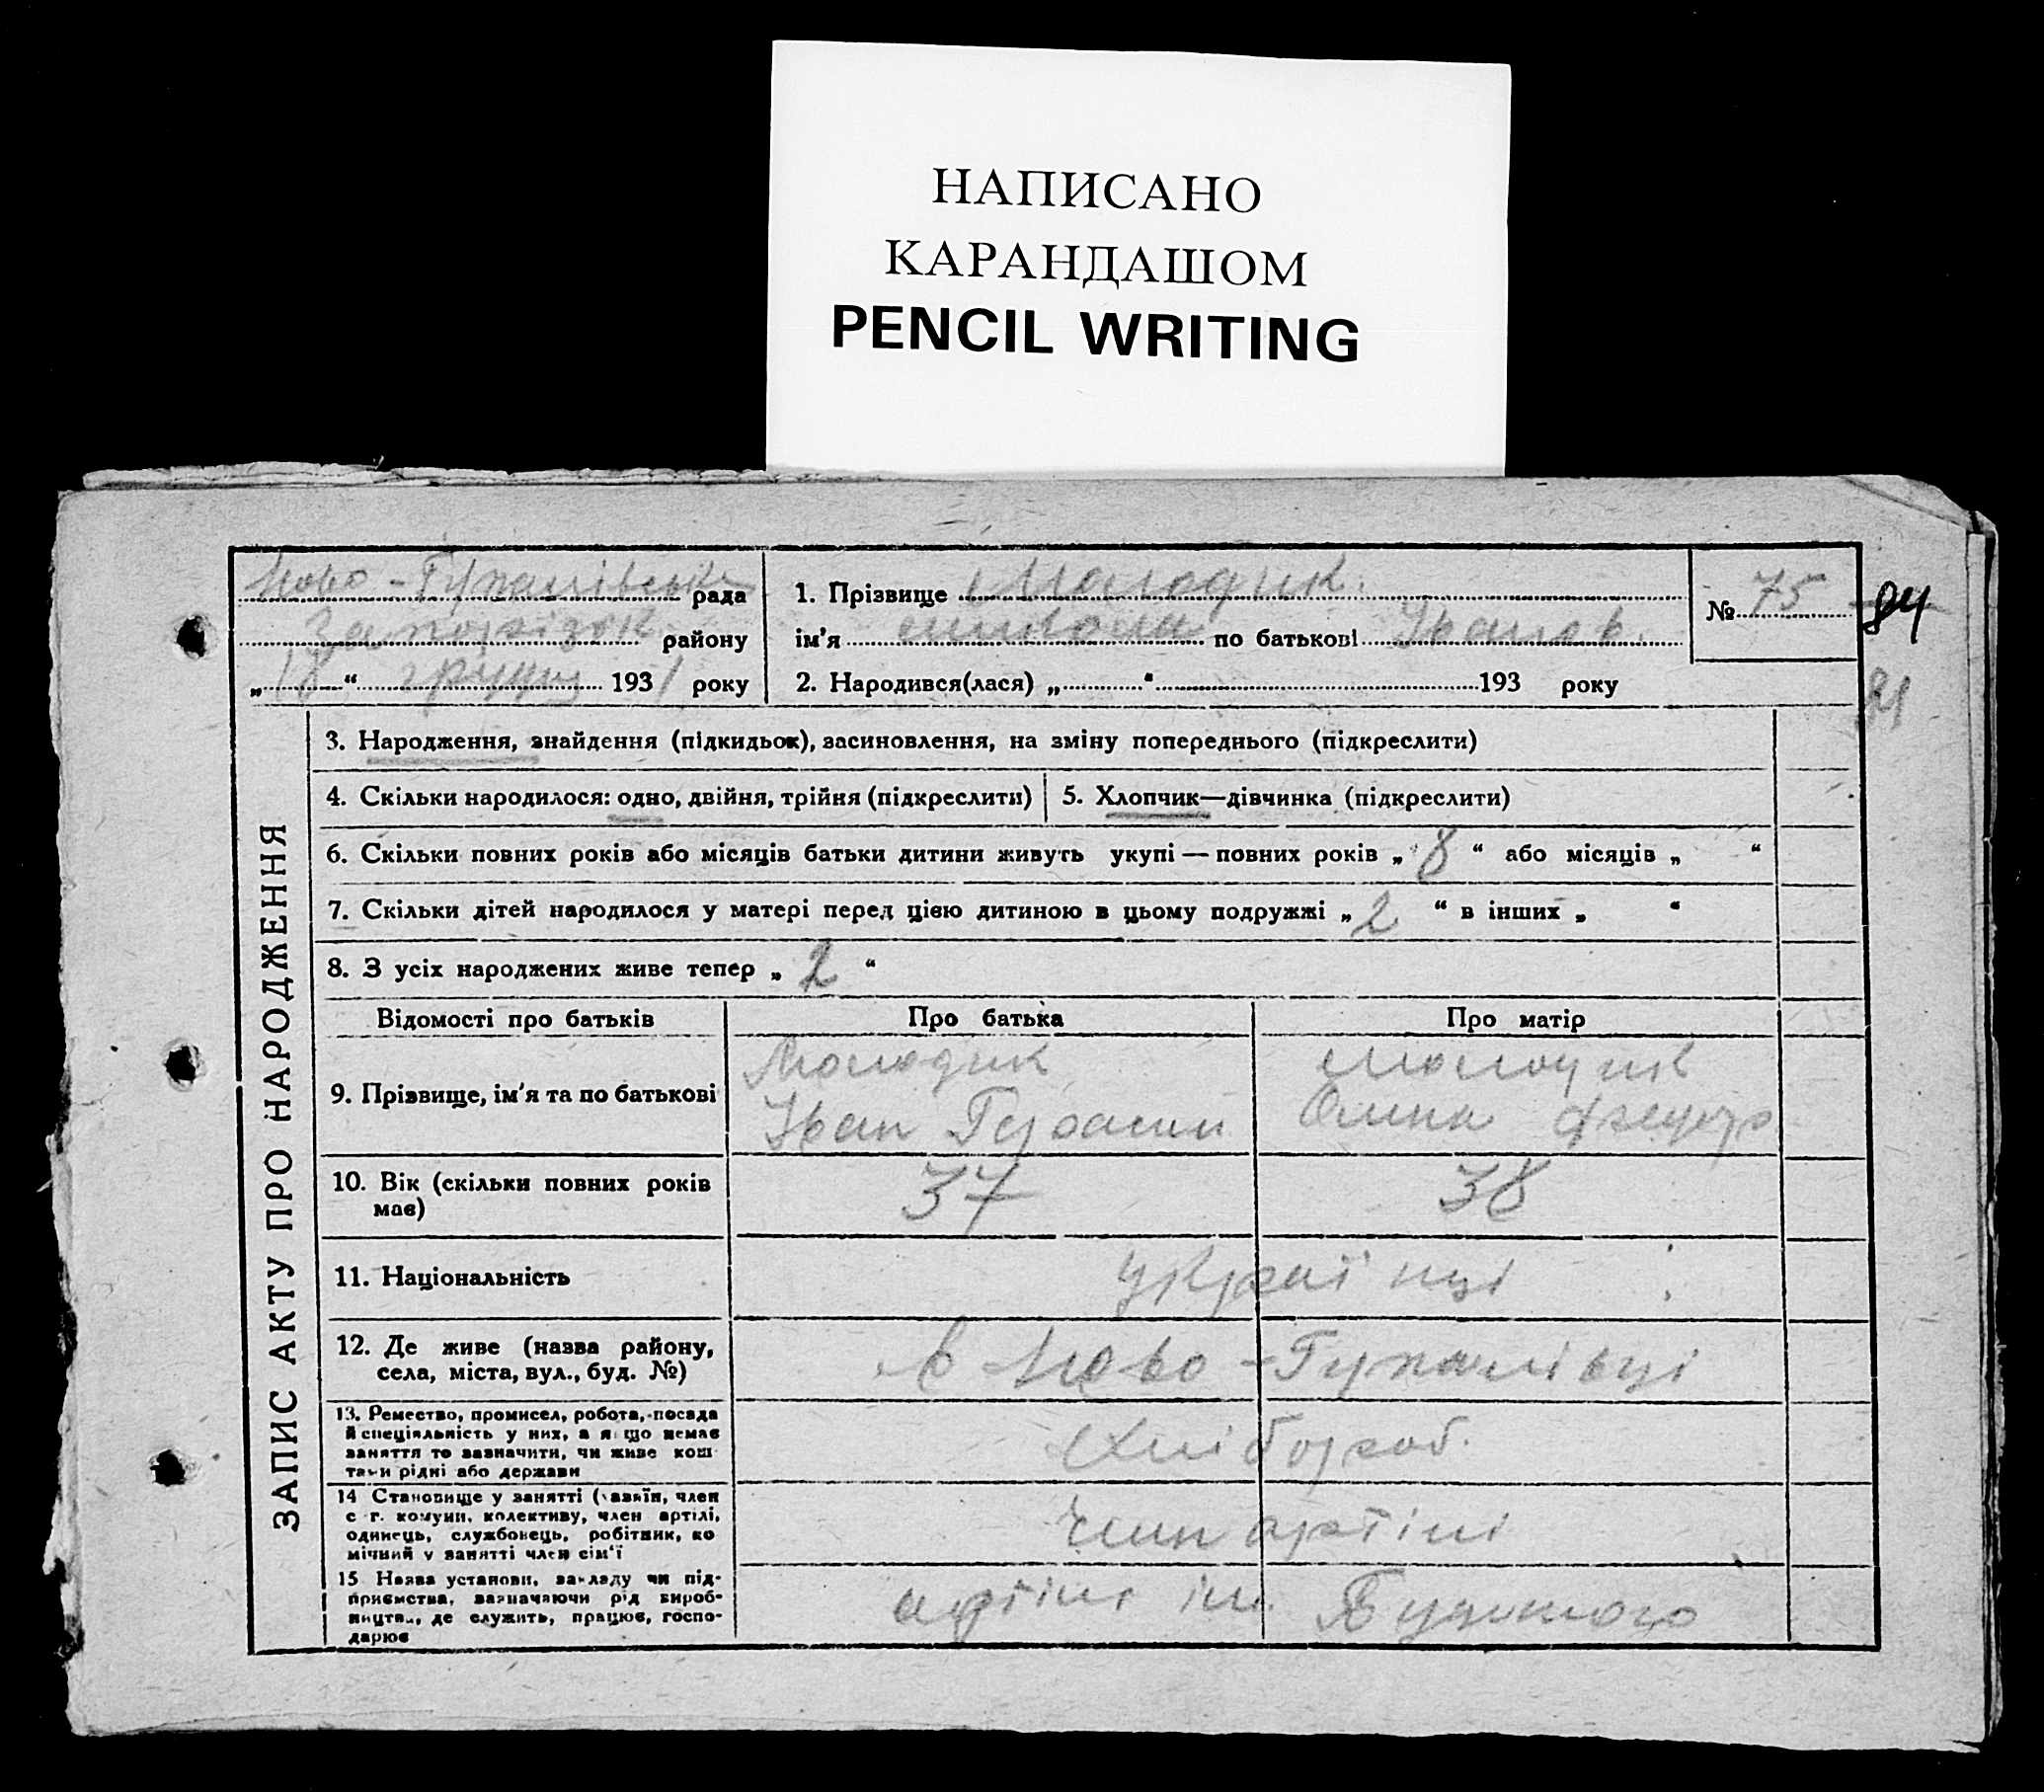 НАПИСАНО
КАРАНДАШОМ
PENCIL WRITING
Ново-Гупалівська рада
Запорізьк району
„18“ грудня 1931 року
1. Прізвище Молодик
ім'я Микола по батькові Іванов.
2. Народився(лася) „ “ 193 року
№ 75
84
ЗАПИС АКТУ ПРО НАРОДЖЕННЯ
3. Народження, знайдення (підкидьок), засиновлення, на зміну попереднього (підкреслити)
4. Скільки народилося: одно, двійня, трійня (підкреслити)
5. Хлопчик—дівчинка (підкреслити)
6. Скільки повних років або місяців батьки дитини живуть укупі — повних років „8“ або місяців „ “
7. Скільки дітей народилося у матері перед цією дитиною в цьому подружжі „2“ в інших „ “
8. З усіх народжених живе тепер „2“
Відомості про батьків
Про батька
Про матір
9. Прізвище, ім'я та по батькові
Молодик
Іван Гарасим
Молодик
10. Вік (скільки повних років
має)
37
38
11. Національність
українці
12. Де живе (назва району,
села, міста, вул., буд. №)
в Ново-Гупалівці
13. Ремество, промисел, робота, посада
й спеціяльність у них, а якщо немає
заняття то зазначити, чи живе кош
тами рідні або держави
Хлібороб.
14 Становище у занятті (хазяїн, член
с г. комуни, колективу, член артілі,
одинець, службовець, робітник, по
мічний у занятті член сім'ї
член артілі
15 Назва установи, закладу чи під-
приємства, зазначаючи рід вироб-
ництва, де служить, працює, госпо-
дарює
артіль ім.